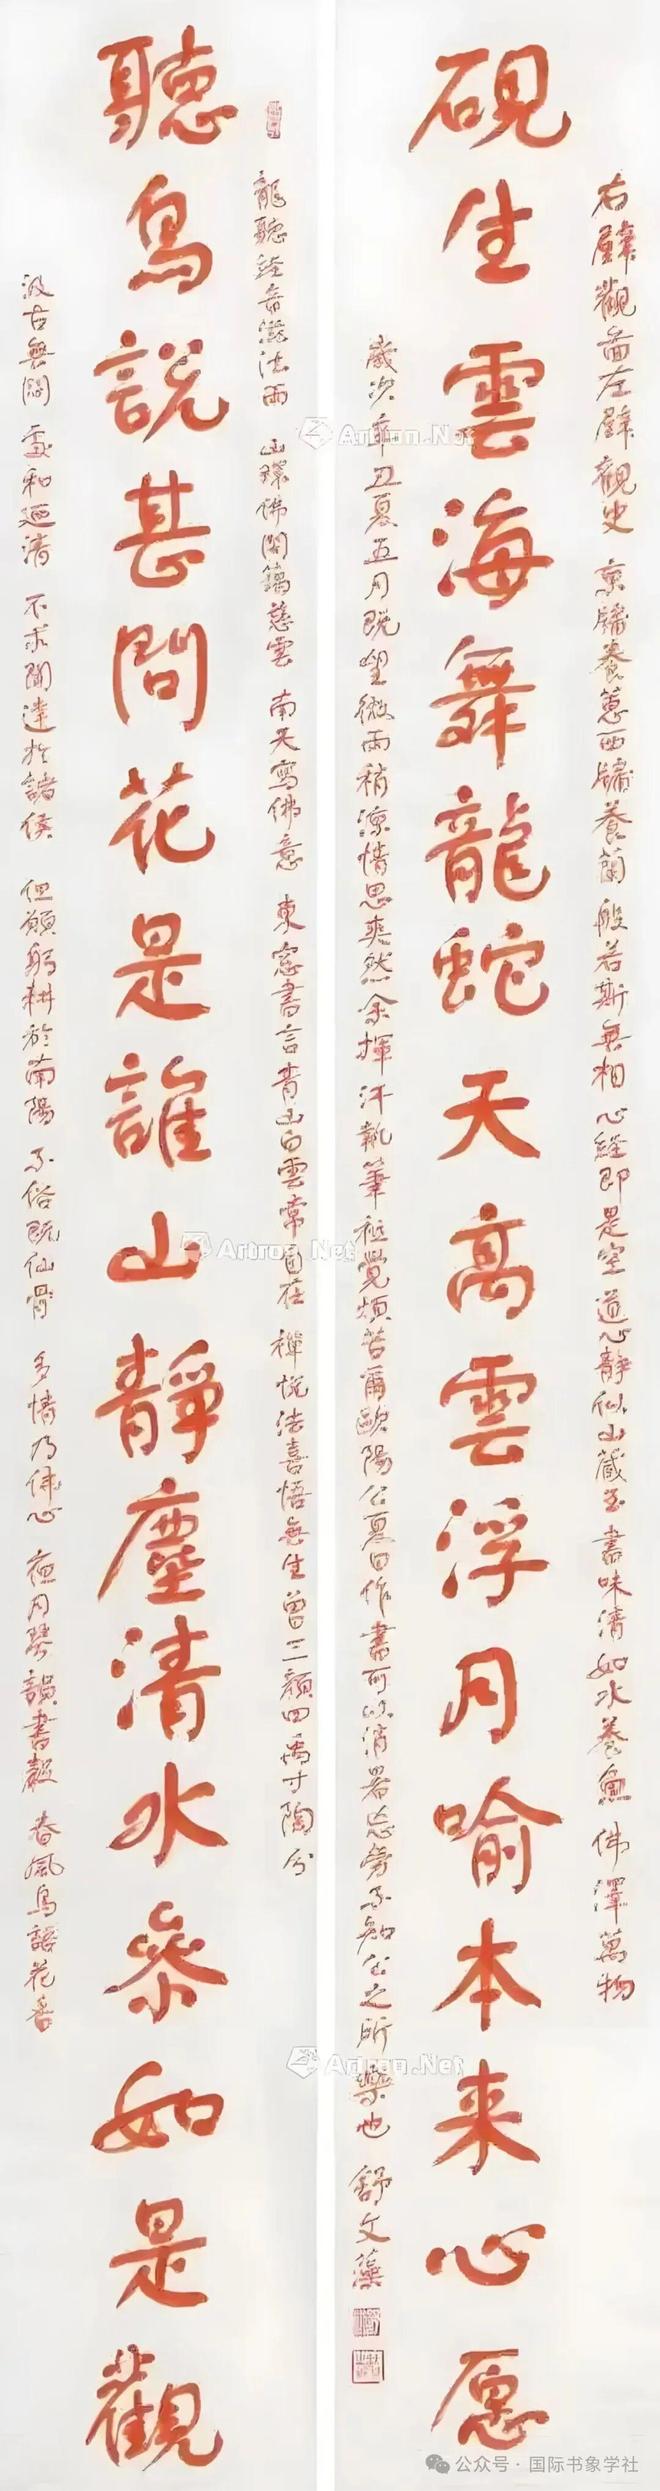 右壁觀畫左壁觀史 東牖養蕙西牖養蘭 般若斯無相 心經即是空 道心靜似山藏玉 書味清如水養魚 佛澤萬物
硯生雲海舞龍蛇天高雲浮月喻本来心愿
歲次辛丑夏五月既望微雨稍涼情思爽然余揮汗執筆 覺煩苦爾歐陽公夏日作書可以消暑忘勞不知公之所樂也 舒文
龍聽經音滋法雨 山環佛閣籠慈雲 南天寫佛意 東窗書言青山白雲常自在 禪悅法喜悟無生曾三顏四禹寸陶分
聽鳥說甚問花是誰山靜塵清水參如是觀
汲古無悶 處和廼清 不求聞達於諸侯 但願躬耕於南陽 不俗既仙骨 多情乃佛心 夜月琴韻書聲 春風鳥語花香
Artron.Net
Artron.Net
Artron.Net
公众号·国际书象学社